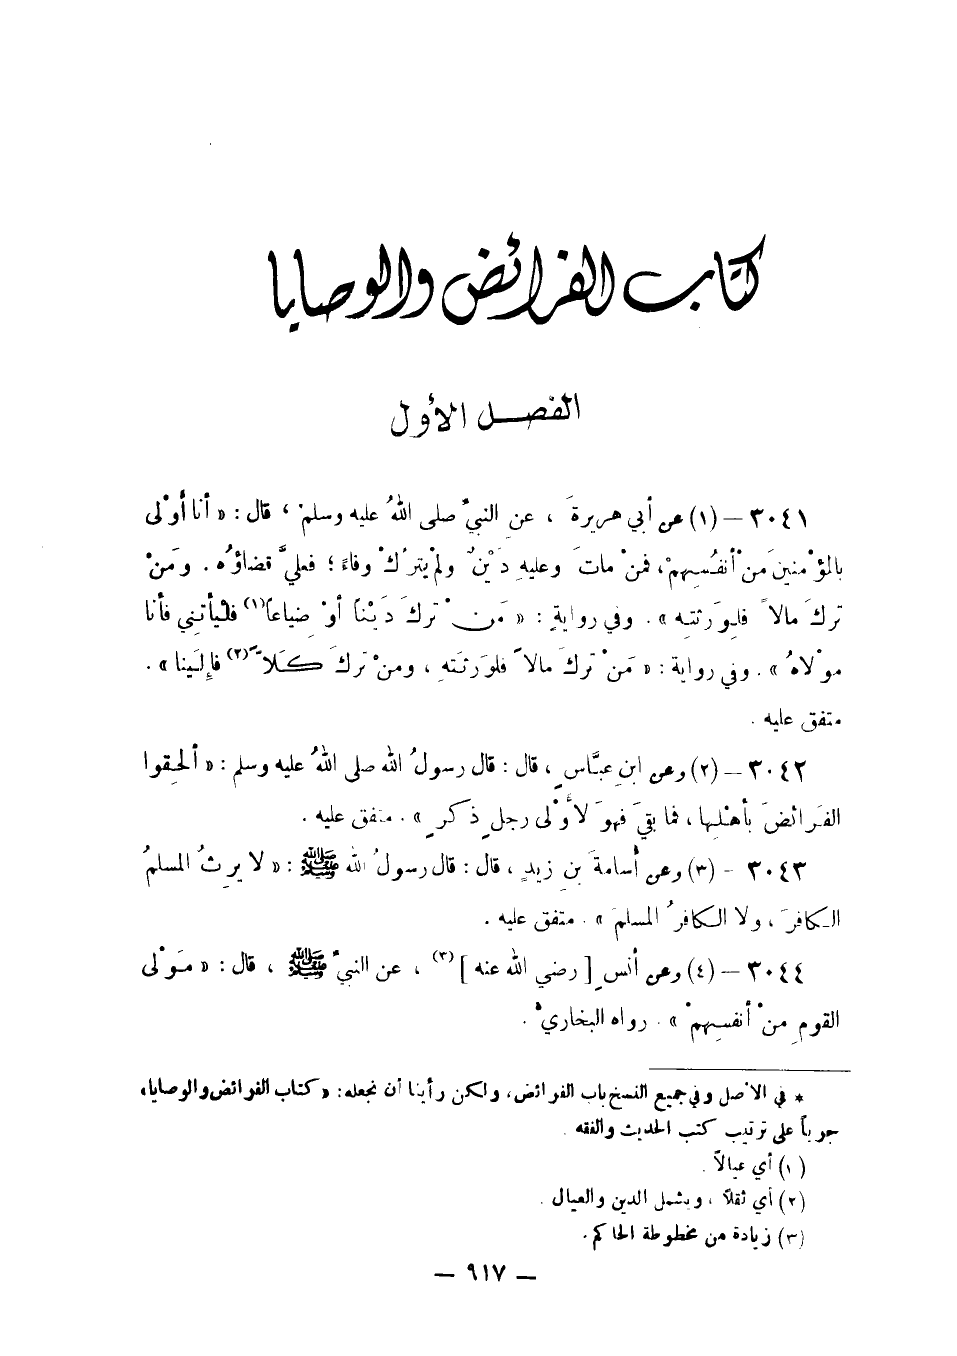 كتاب الفرائض والوصايا
الفصل الأول
٣٠٤١ – (١) عن أبي هريرةَ ، عن النبيِّ صلى اللهُ عليه وسلمَ ، قال : « أنا أَوْلى
بالمؤْمنينَ منْ أنفُسِهمْ، فمنْ ماتَ وعليهِ دَيْنٌ ولمْ يترُكْ وفاءً ؛ فعليَّ قضاؤُه . ومَنْ
تركَ مالاً فلِوَرثتِه » . وفي روايةٍ : « مَن ْ تركَ دَيْناً أوْ ضياعاً(١) فلْيأتِني فأنا
موْلاهُ » . وفي رواية : « مَنْ تركَ مالاً فلوَرَثتِه ، ومنْ تركَ كَلاًّ(٢) فإِلَينا » .
متفق عليه .
٣٠٤٢ – (٢) وعن ابنِ عبَّاسٍ ، قال : قال رسولُ الله صلى اللهُ عليه وسلم : « ألحِقوا
الفَرائضَ بأهْلِها ، فما بقيَ فهوَ لأَوْلى رجلٍ ذكرٍ » . متفق عليه .
٣٠٤٣ - (٣) وعن أُسامةَ بنِ زيدٍ ، قال : قال رسولُ الله ﷺ : « لا يرِثُ المسلمُ
الكافرَ ، ولا الكافرُ المسلمَ » . متفق عليه .
٣٠٤٤ – (٤) وعن أنسٍ [ رضي الله عنه ](٣) ، عن النبيِّ ﷺ ، قال : « مَوْلى
القومِ منْ أنفسِهمْ » . رواه البخاريُّ .
* في الأصل وفي جميع النسخ باب الفرائض، ولكن رأينا أن نجعله: « كتاب الفرائض والوصايا»
جرياً على ترتيب كتب الحديث والفقه .
(١) أي عيالاً .
(٢) أي ثقلاً ، ويشمل الدين والعيال .
(٣) زيادة من مخطوطة الحاكم .
– ٩١٧ –